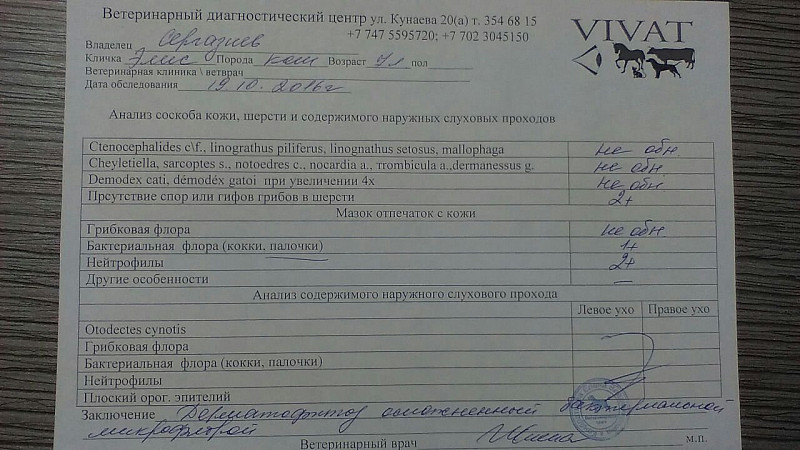 Ветеринарный диагностический центр ул. Кунаева 20(а) т. 354 68 15
+7 747 5595720; +7 702 3045150
VIVAT
Владелец Сергазиев
Кличка Элис Порода кош Возраст 4л пол
Ветеринарная клиника \ ветврач
Дата обследования 19.10.2016г
Анализ соскоба кожи, шерсти и содержимого наружных слуховых проходов
Ctenocephalides c\f., linograthus piliferus, linognathus setosus, mallophaga не обн.
Cheyletiella, sarcoptes s., notoedres c., nocardia a., trombicula a.,dermanessus g. не обн
Demodex cati, démodéx gatoi при увеличении 4x не обн
Прсутствие спор или гифов грибов в шерсти 2+
Мазок отпечаток с кожи
Грибковая флора не обн
Бактериальная флора (кокки, палочки) 1+
Нейтрофилы 2+
Другие особенности —
Анализ содержимого наружного слухового прохода
Левое ухо Правое ухо
Otodectes cynotis
Грибковая флора
Бактериальная флора (кокки, палочки)
Нейтрофилы
Плоский орог. эпителий
Заключение Дерматофитоз осложненный бактериальной
микрофлорой
Ветеринарный врач м.п.